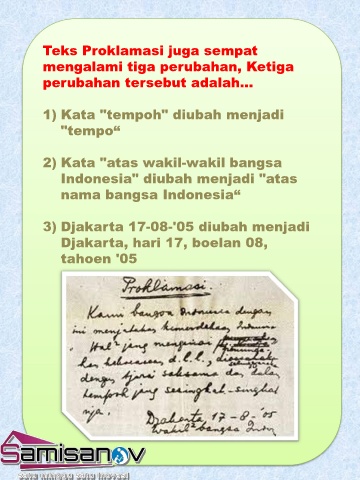 Teks Proklamasi juga sempat
mengalami tiga perubahan, Ketiga
perubahan tersebut adalah...
1) Kata "tempoh" diubah menjadi
"tempo“
2) Kata "atas wakil-wakil bangsa
Indonesia" diubah menjadi "atas
nama bangsa Indonesia“
3) Djakarta 17-08-'05 diubah menjadi
Djakarta, hari 17, boelan 08,
tahoen '05
Proklamasi.
Kami bangsa Indonesia dengan
ini menjatakan kemerdekaan Indonesia
Hal² jang mengenai
kekoeasaan d.l.l.,
dengan tjara saksama dan dalam
tempoh jang sesingkat-singkat
nja.
Djakarta 17-8-'05
Wakil² bangsa Indon
Samisanov
Satu Minggu Satu Inovasi